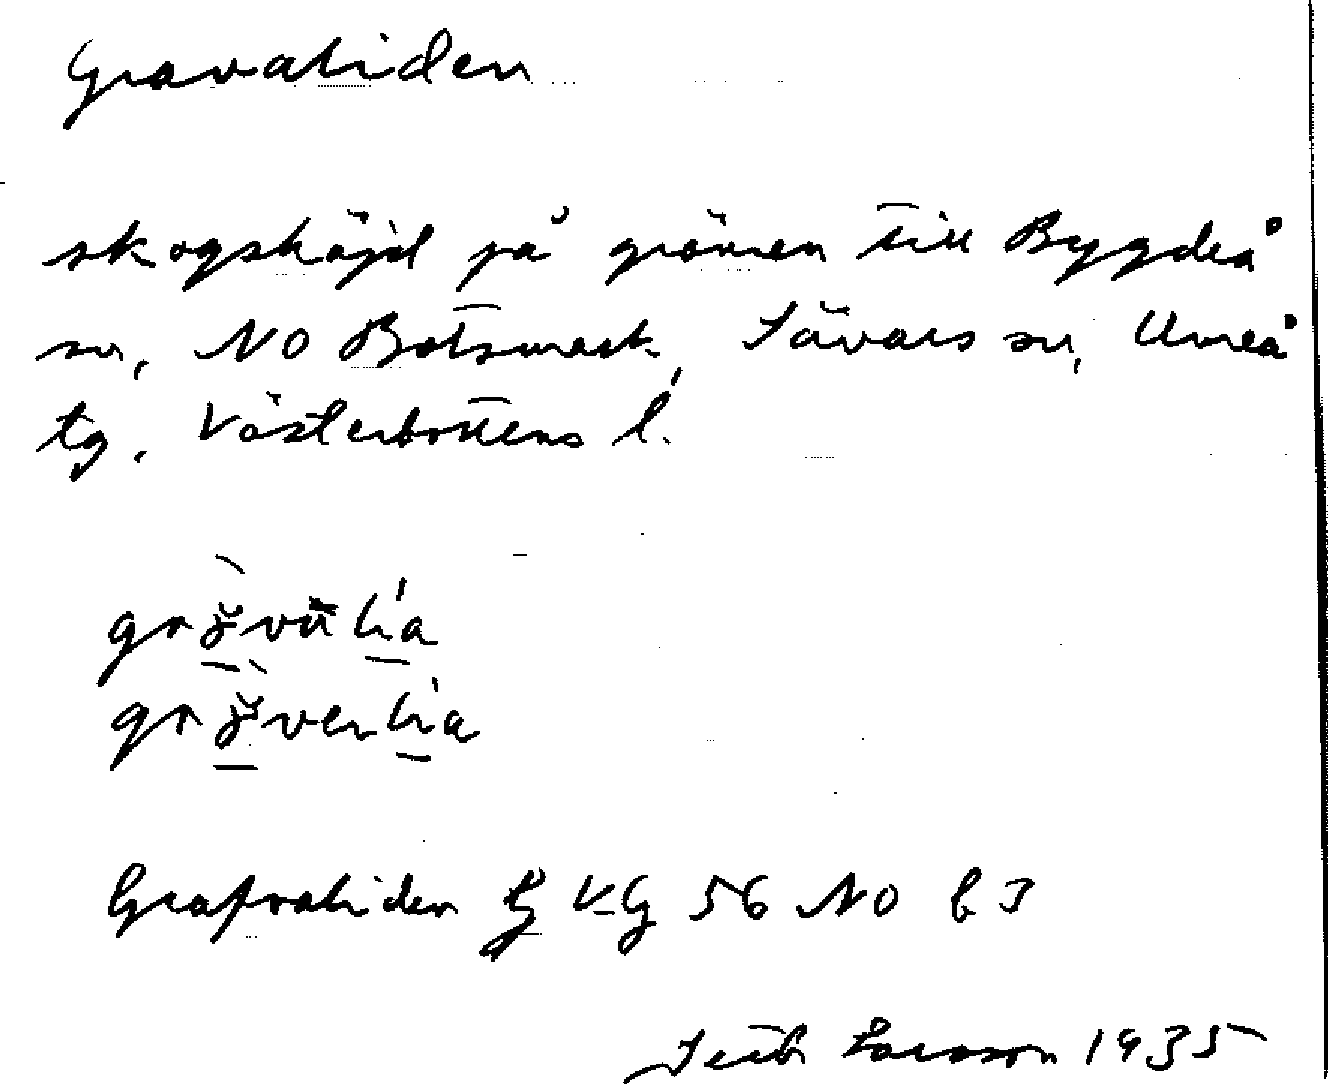 Gravaliden
skogshöjd på gränsen till Bygdeå
sn, NO Botsmark, Sävars sn, Umeå
tg. Västerbottens l.
Grafvaliden GVG 56 NO b 3
Larsson 1935